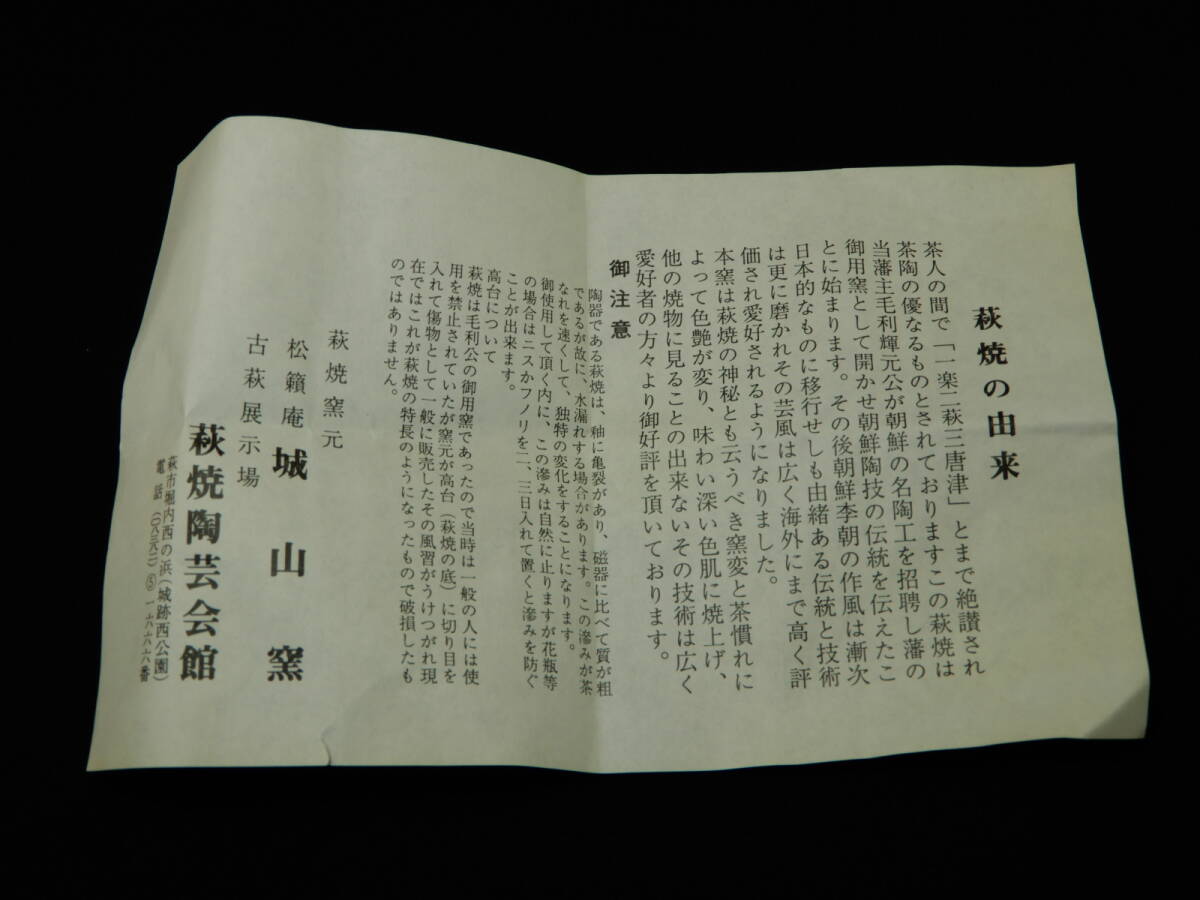 萩焼の由来
茶人の間で「一楽二萩三唐津」とまで絶讃され
茶陶の優なるものとされておりますこの萩焼は
当藩主毛利輝元公が朝鮮の名陶工を招聘し藩の
御用窯として開かせ朝鮮陶技の伝統を伝えたこ
とに始まります。その後朝鮮李朝の作風は漸次
日本的なものに移行せしも由緒ある伝統と技術
は更に磨かれその芸風は広く海外にまで高く評
価され愛好されるようになりました。
本窯は萩焼の神秘とも云うべき窯変と茶慣れに
よって色艶が変り、味わい深い色肌に焼上げ、
他の焼物に見ることの出来ないその技術は広く
愛好者の方々より御好評を頂いております。
御注意
陶器である萩焼は、釉に亀裂があり、磁器に比べて質が粗
であるが故に、水漏れする場合があります。この滲みが茶
なれを速くして、独特の変化をすることになります。
御使用して頂く内に、この滲みは自然に止りますが花瓶等
の場合はニスかフノリを二、三日入れて置くと滲みを防ぐ
ことが出来ます。
高台について
萩焼は毛利公の御用窯であったので当時は一般の人には使
用を禁止されていたが窯元が高台（萩焼の底）に切り目を
入れて傷物として一般に販売したその風習がうけつがれ現
在ではこれが萩焼の特長のようになったもので破損したも
のではありません。
萩焼窯元
松籟庵 城山窯
古萩展示場
萩焼陶芸会館
萩市堀内西の浜（城跡西公園）
電話（〇八三八二）⑤一六六六番